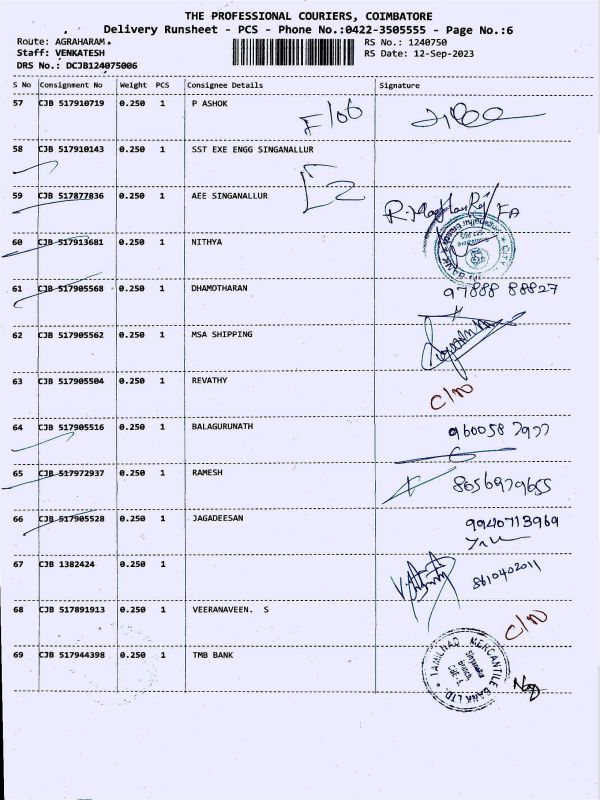 THE PROFESSIONAL COURIERS, COIMBATORE
Delivery Runsheet - PCS - Phone No.:0422-3505555 - Page No.:6
Route: AGRAHARAM. RS No.: 1240750
Staff: VENKATESH RS Date: 12-Sep-2023
DRS No.: DCJB124075006
S No Consignment No Weight PCS Consignee Details Signature
57 CJB 517910719 0.250 1 P ASHOK
58 CJB 517910143 0.250 1 SST EXE ENGG SINGANALLUR
59 CJB 517877836 0.250 1 AEE SINGANALLUR
60 CJB 517913681 0.250 1 NITHYA
61 CJB 517905568 0.250 1 DHAMOTHARAN 97888 88827
62 CJB 517905562 0.250 1 MSA SHIPPING
63 CJB 517905504 0.250 1 REVATHY C/ND
64 CJB 517905516 0.250 1 BALAGURUNATH
65 CJB 517972937 0.250 1 RAMESH 8656979655
66 CJB 517905528 0.250 1 JAGADEESAN 9940713969
67 CJB 1382424 0.250 1 8610402011
68 CJB 517891913 0.250 1 VEERANAVEEN. S C/ND
69 CJB 517944398 0.250 1 TMB BANK TAMILNAD MERCANTILE BANK LTD.